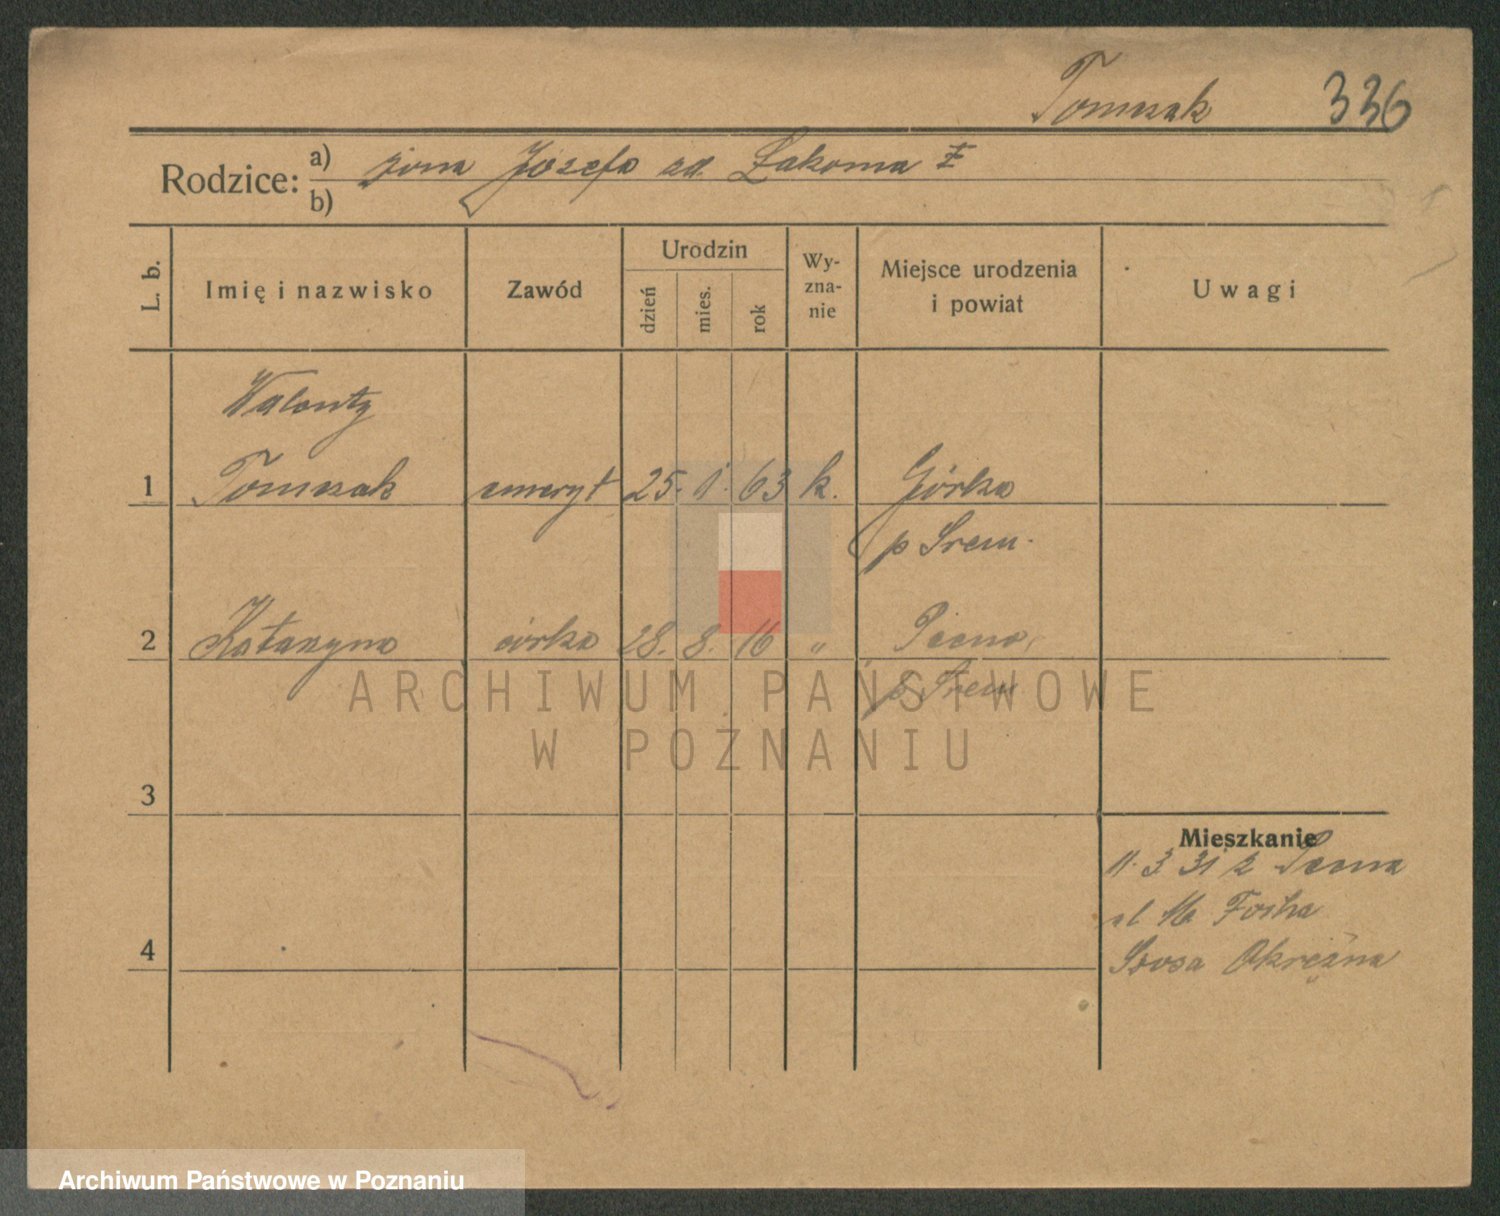 Tomczak 336
Rodzice: a) żona Józefa od. Łakoma
b)
L. b.
Imię i nazwisko
Zawód
Urodzin
dzień
mies.
rok
Wy-
zna-
nie
Miejsce urodzenia
i powiat
Uwagi
Walenty
1 Tomczak emeryt 25. 1. 63 k. Górka
p Śrem.
2 Katarzyna córka 28. 8. 16 " Pecna,
p Śrem
3
4
Mieszkanie
11. 3 31 z Pecna
ul Focha
Szosa Okrężna
ARCHIWUM PAŃSTWOWE
W POZNANIU
Archiwum Państwowe w Poznaniu